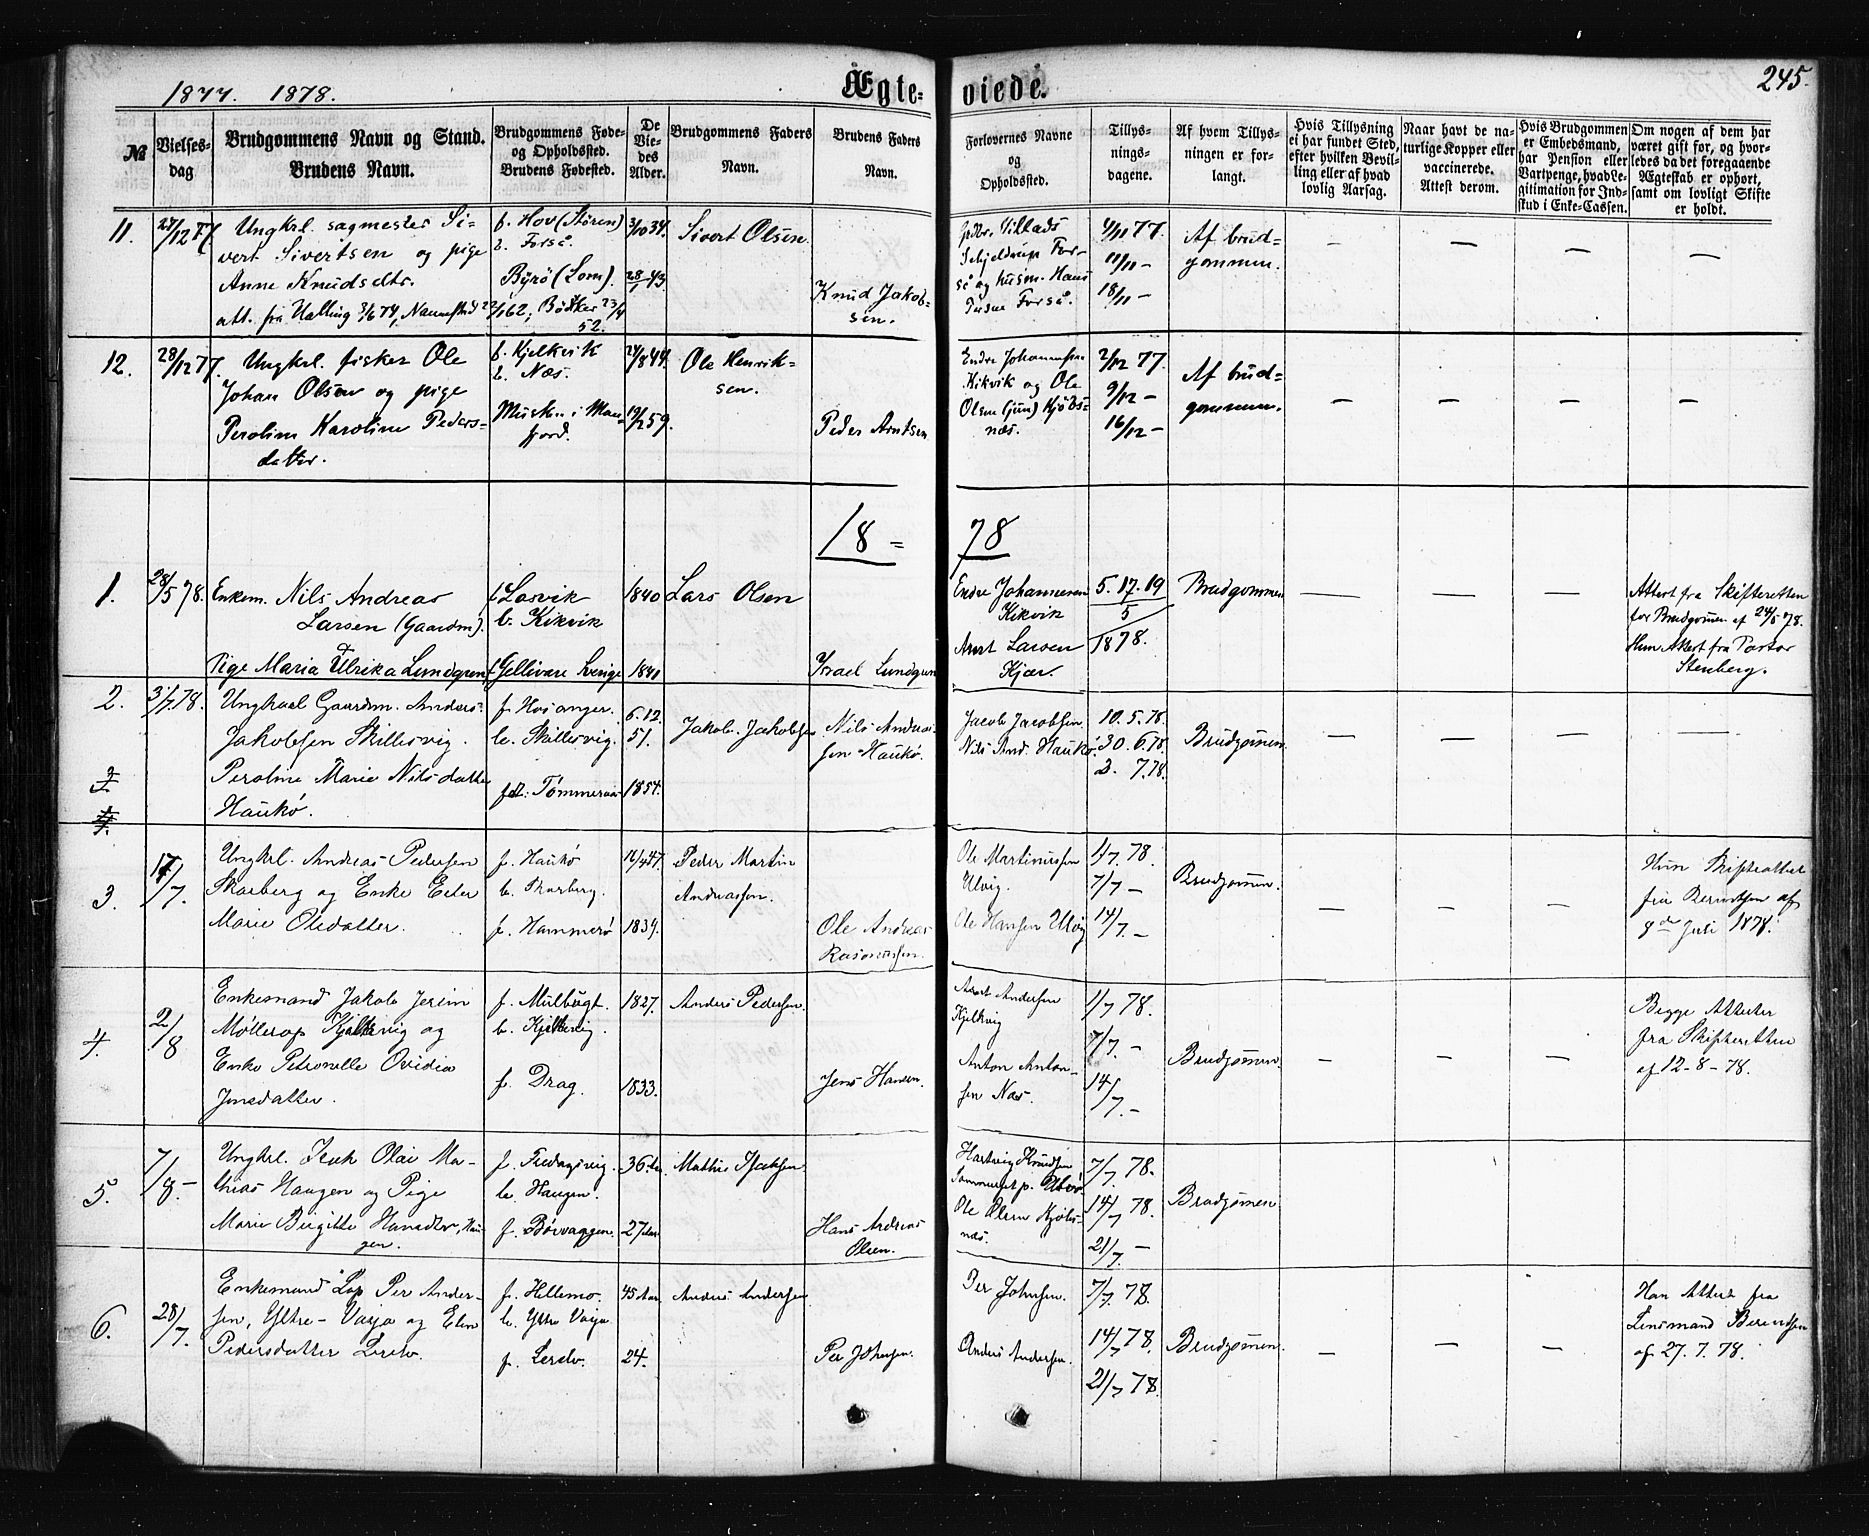 1877. 1878.
Ægte-
viede.
245.
№
Vielses-
dag
Brudgommens Navn og Stand.
Brudens Navn.
Brudgommens Føde-
og Opholdssted.
Brudens Fødested.
De
Vie-
des
Alder.
Brudgommens Faders
Navn.
Brudens Faders
Navn.
Forlovernes Navne
og
Opholdssted.
Tillys-
nings-
dagene.
Af hvem Tillys-
ningen er for-
langt.
Hvis Tillysning
ei har fundet Sted,
efter hvilken Bevil-
ling eller af hvad
lovlig Aarsag.
Naar havt de na-
turlige Kopper eller
vaccinerede.
Attest derom.
Hvis Brudgommen
er Embedsmand,
har Pension eller
Vartpenge, hvad Le-
gitimation for Ind-
skud i Enke-Cassen.
Om nogen af dem har
været gift for, og hvor-
ledes da det foregaaende
Ægteskab er ophørt,
samt om lovligt Skifte
er holdt.
11.
27/12 77.
Ungkrl. sagmester Si-
vert Sivertsen og pige
Anne Knudsdtr.
att. fra Hælling 3/6 74, Navnested 2/1 62, Bödker 23/4
52.
f. Hov (Støren)
b. Forså.
Byrö (Lom).
3/10 34.
28/1 43.
Sivert Olsen.
Knud Jakob-
sen.
Schjeldrup For-
så og husm. Hans
Forså.
4/11 77.
11/11 —
18/11 —
Af brud-
gommen.
— — — —
12.
28/12 77.
Ungkrl. fisker Ole
Johan Olsen og pige
Peroline Karoline Peders-
datter.
f. Kjelkvik
b. Næs.
Musken i Man-
fjord.
24/8 44.
19/2 59.
Ole Henrik-
sen.
Peder Arntsen
Endre Johannesen
Kikvik og Ole
Olsen (jun) Kjöbs-
næs.
2/12 77.
9/12 —
16/12 —
Af brud-
gommen.
— — — —
18 =
78
1.
28/5 78.
Enkem. Nils Andreas
Larsen (Gaardm).
Pige Maria Ulrika Lundgren
f. Losvik
b. Kikvik
f. Gellivare Sverige
1840
1841
Lars Olsen
Israel Lundgren
Endre Johannesen
Kikvik
Arnt Larsen
Kjær.
5. 12. 19
5
1878.
Brudgommen
— — —
Attest fra Skifteretten
for Brudgommen af 24/5 78.
Hun Attest fra Pastor
Stenberg.
2.
3/7 78.
Ungkael Gaardm. Anders
Jakobsen Skillesvig.
Peroline Marie Nilsdatter
Haukö.
f. Hosanger.
b. Skillesvig.
fdt. Tömmeraas
6.12.
51.
1854.
Jakob Jakobsen
Nils Andrea-
sen Haukö.
Jacob Jacobsen
Nils And. Haukö.
10. 5. 78.
30. 6. 78.
2. 7. 78.
Brudgommen.
— — — —
3.
17/7.
Ungkrl. Andreas Pedersen
Skarberg og Enke Elen
Marie Olsdatter.
f. Haukö
b. Skarberg.
f. Hammerö
16/4 47.
1839.
Peder Martin
Andreassen.
Ole Andreas
Rasmussen.
Ole Martinussen
Ulvig.
Ole Hansen Ulvig
1/7. 78.
7/7 —
14/7. —
Brudgommen.
— — —
Hun Skifteattest
fra Berntsen af
8de Juli 1878.
4.
2/8
Enkemand Jakob Jerim
Möllerop Kjelkvig og
Enke Petronelle Ovidia
Jensdatter.
f. Mulbögt.
b. Kjelkvig.
f. Drag.
1827.
1833.
Anders Pedersen.
Jens Hansen.
Arnt Andersen
Kjelkvig
Anton Anton-
sen Næs.
1/7 78.
7/7. —
14/7. —
Brudgommen.
— — —
Begge Attester
fra Skifteretten
af 12-8-78.
5.
7/8 —
Ungkrl. Isak Olai Ma-
thias Haugen og Pige
Marie Birgitte Hansdtr. Hau-
gen.
b. Haugen.
f. Børvaggen.
36 Aar
27 Aar
Mathis Isaksen.
Hans Andreas
Olsen.
Hartvig Knudsen
Sommerset p. Ulvö.
Ole Olsen Kjöbs-
næs.
7/7. 78.
14/7 78.
21/7. —
Brudgommen
6.
28/7.
Enkemand Lap Per Ander-
sen, Yttre-Vasja og Elen
Pedersdatter Lerelv.
f. Hellemo.
b. Yttre Vasja
f. Lerelv.
45 Aar.
24.
Anders Andersen
Per Johnsen.
Per Johnsen.
Anders Andersen.
7/7. 78.
14/7 78.
21/7 78.
Brudgommen.
— — —
Han Attest fra
Lensmand Berntsen
af 27. 7. 78.